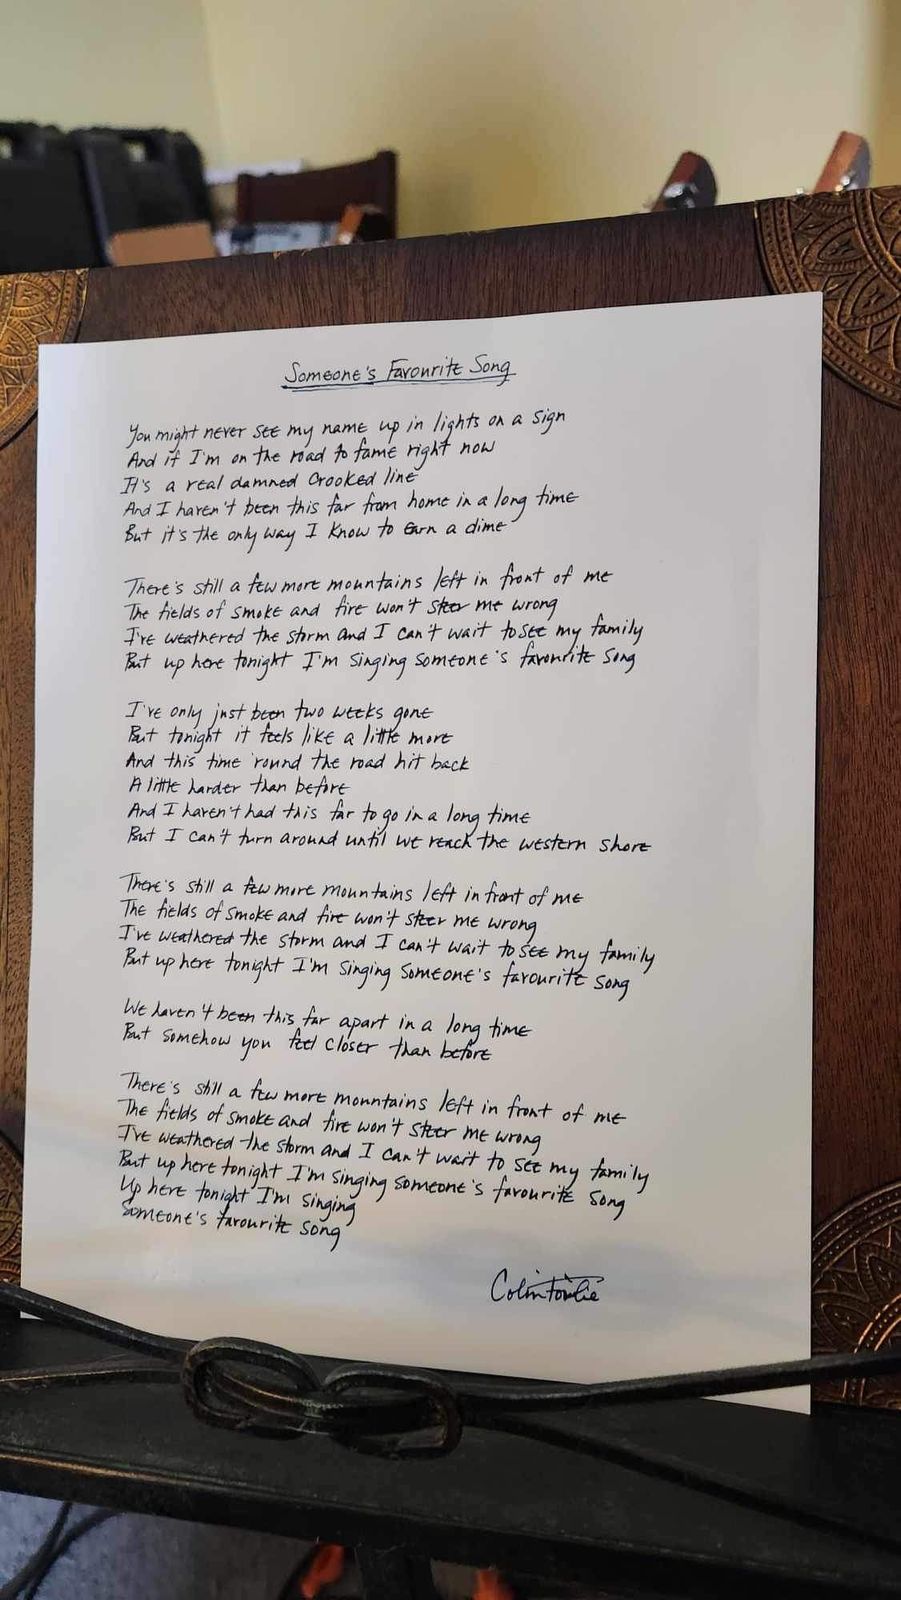 Someone's Favourite Song
You might never see my name up in lights on a sign
And if I'm on the road to fame right now
It's a real damned crooked line
And I haven't been this far from home in a long time
But it's the only way I know to earn a dime
There's still a few more mountains left in front of me
The fields of smoke and fire won't steer me wrong
I've weathered the storm and I can't wait to see my family
But up here tonight I'm singing someone's favourite song
I've only just been two weeks gone
But tonight it feels like a little more
And this time 'round the road hit back
A little harder than before
And I haven't had this far to go in a long time
But I can't turn around until we reach the western shore
There's still a few more mountains left in front of me
The fields of smoke and fire won't steer me wrong
I've weathered the storm and I can't wait to see my family
But up here tonight I'm singing someone's favourite song
We haven't been this far apart in a long time
But somehow you feel closer than before
There's still a few more mountains left in front of me
The fields of smoke and fire won't steer me wrong
I've weathered the storm and I can't wait to see my family
But up here tonight I'm singing someone's favourite song
Up here tonight I'm singing
Someone's favourite song
Colin